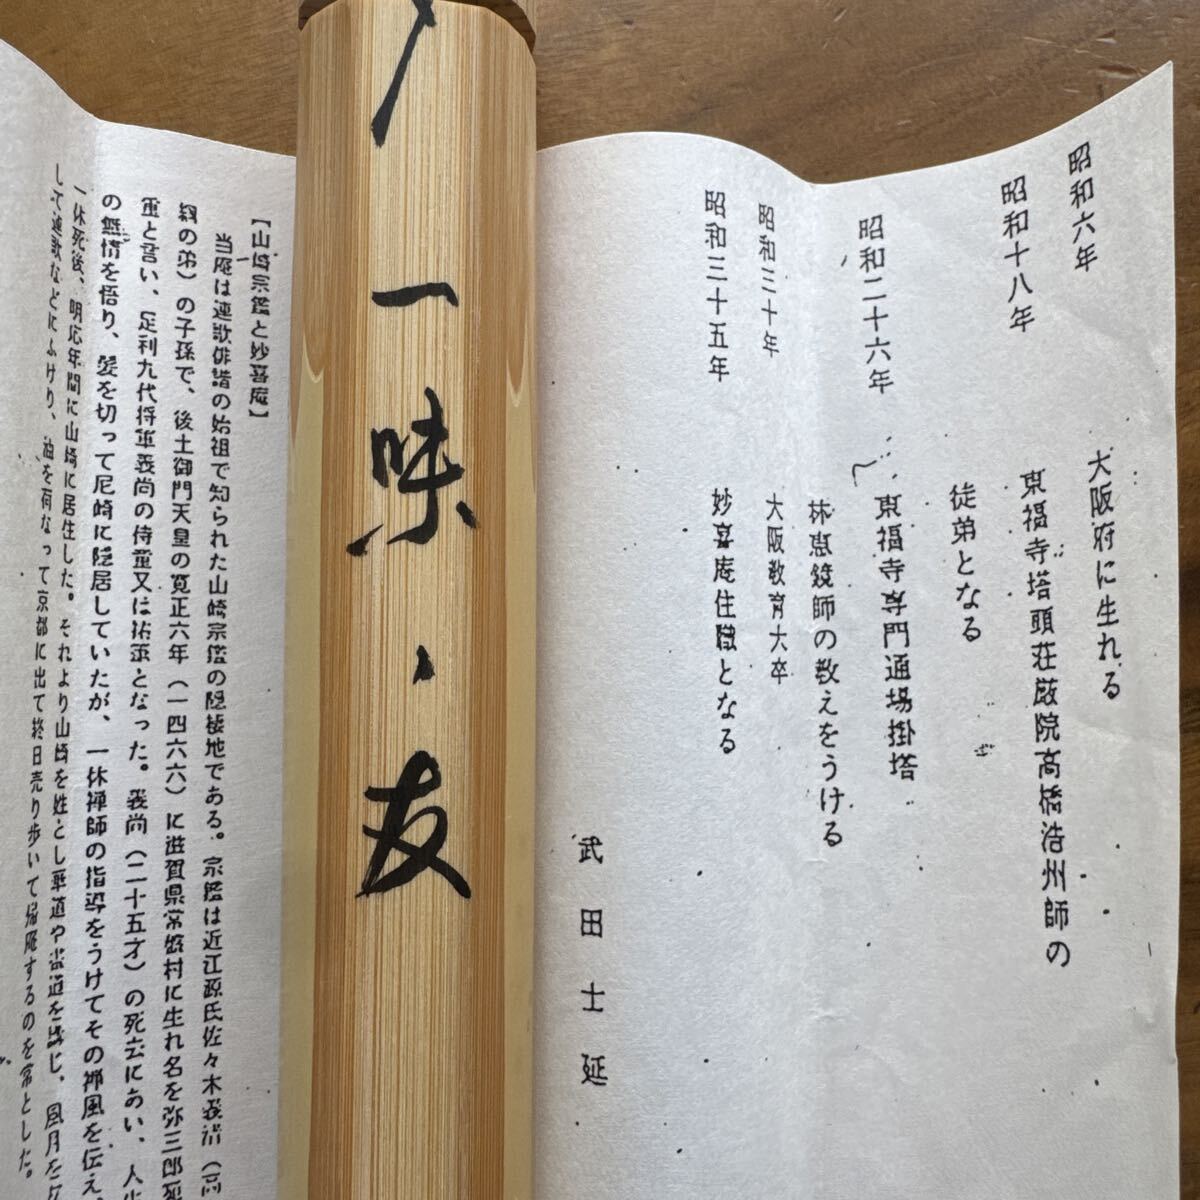 昭和六年 大阪府に生れる
昭和十八年 東福寺塔頭荘厳院高橋浩州師の
徒弟となる
昭和二十六年 東福寺専門通場掛塔
林恵鏡師の教えをうける
昭和三十年 大阪教育大卒
昭和三十五年 妙喜庵住職となる
武田士延
一味
友
【山崎宗鑑と妙喜庵】
当庵は連歌俳諧の始祖で知られた山崎宗鑑の隠棲地である。宗鑑は近江源氏佐々木義清（高
綱の弟）の子孫で、後土御門天皇の寛正六年（一四六六）に滋賀県常盤村に生れ名を弥三郎範
重と言い、足利九代将軍義尚の侍童又は祐筆となった。義尚（二十五才）の死去にあい、人生
の無情を悟り、髪を切って尼崎に隠居していたが、一休禅師の指導をうけてその禅風を伝え、
一休死後、明応年間に山崎に居住した。それより山崎を姓とし華道や書道を講じ、風月を友
して連歌などにふけり、油を荷なって京都に出て終日売り歩いて帰庵するのを常とした。